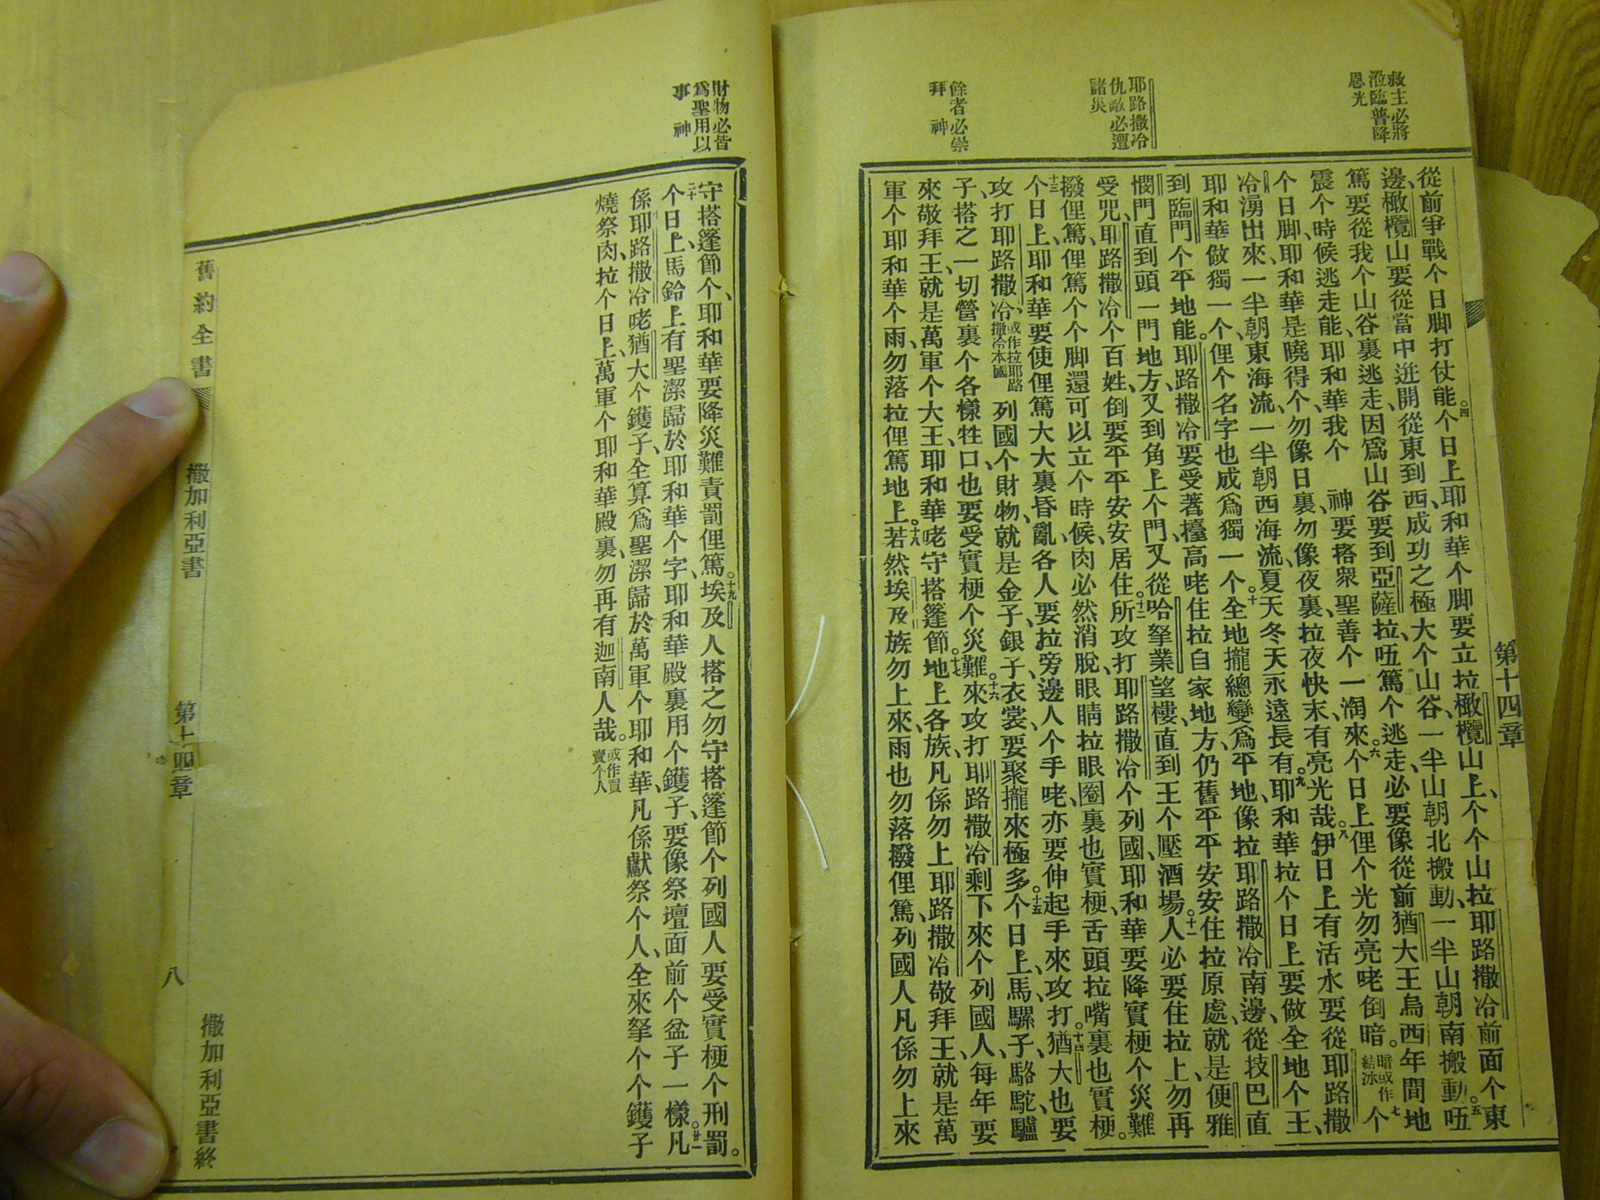 救主必將
涖臨普降
恩光
耶路撒冷
仇敵必遭
諸災
餘者必崇
拜 神
第十四章
從前爭戰个日脚打仗能。四个日上耶和華个脚要立拉橄欖山上、个个山拉耶路撒冷前面个東
邊、橄欖山要從當中迸開、從東到西、成功之極大个山谷、一半山朝北搬動、一半山朝南搬動。五㑚
篤要從我个山谷裏逃走、因爲山谷要到亞薩拉、㑚篤个逃走、必要像從前猶大王烏西年間地
震个時候逃走能、耶和華我个 神要搭衆聖善个一淘來。六个日上俚个光勿亮咾倒暗。暗或作結冰七个
个日脚、耶和華是曉得个、勿像日裏、勿像夜裏、拉夜快末、有亮光哉。八伊日上有活水要從耶路撒
冷湧出來、一半朝東海流、一半朝西海流、夏天冬天永遠長有。九耶和華拉个日上要做全地个王、
耶和華做獨一个、俚个名字也成爲獨一个。十全地攏總變爲平地、像拉耶路撒冷南邊、從技巴直
到臨門个平地能。耶路撒冷要受著擡高咾住拉自家地方、仍舊平平安安住拉原處、就是便雅
憫門直到頭一門地方、又到角上个門、又從哈拏業望樓、直到王个壓酒場。十一人必要住拉上、勿再
受咒、耶路撒冷个百姓、倒要平平安安居住。十二所攻打耶路撒冷个列國、耶和華要降實梗个災難
撥俚篤、俚篤个个脚還可以立个時候、肉必然消脫、眼睛拉眼圈裏也實梗、舌頭拉嘴裏也實梗。
十三个日上、耶和華要使俚篤大大裏昏亂、各人要拉旁邊人个手咾、亦要伸起手來攻打。十四猶大也要
攻打耶路撒冷、或作拉耶路撒冷本國列國个財物、就是金子、銀子、衣裳、要聚攏來極多。十五个日上、馬、騾子、駱駝、驢
子、搭之一切營裏个各樣牲口、也要受實梗个災難。十六來攻打耶路撒冷、剩下來个列國人、每年要
來敬拜王、就是萬軍个大王耶和華咾守搭篷節。十七地上各族、凡係勿上耶路撒冷敬拜王、就是萬
軍个耶和華个、雨勿落拉俚篤地上。十八若然埃及族勿上來、雨也勿落撥俚篤、列國人凡係勿上來
財物必皆
爲聖用以
事 神
守搭篷節个、耶和華要降災難責罰俚篤。十九埃及人搭之勿守搭篷節个列國人要受實梗个刑罰。
二十个日上、馬鈴上有聖潔歸於耶和華个字、耶和華殿裏用个鑊子、要像祭壇面前个盆子一樣。廿一凡
係耶路撒冷咾猶大个鑊子、全算爲聖潔歸於萬軍个耶和華、凡係獻祭个人、全來拏个个鑊子
燒祭肉、拉个日上、萬軍个耶和華殿裏、勿再有迦南人哉。或作買賣个人
舊約全書 撒加利亞書 第十四章 八 撒加利亞書終